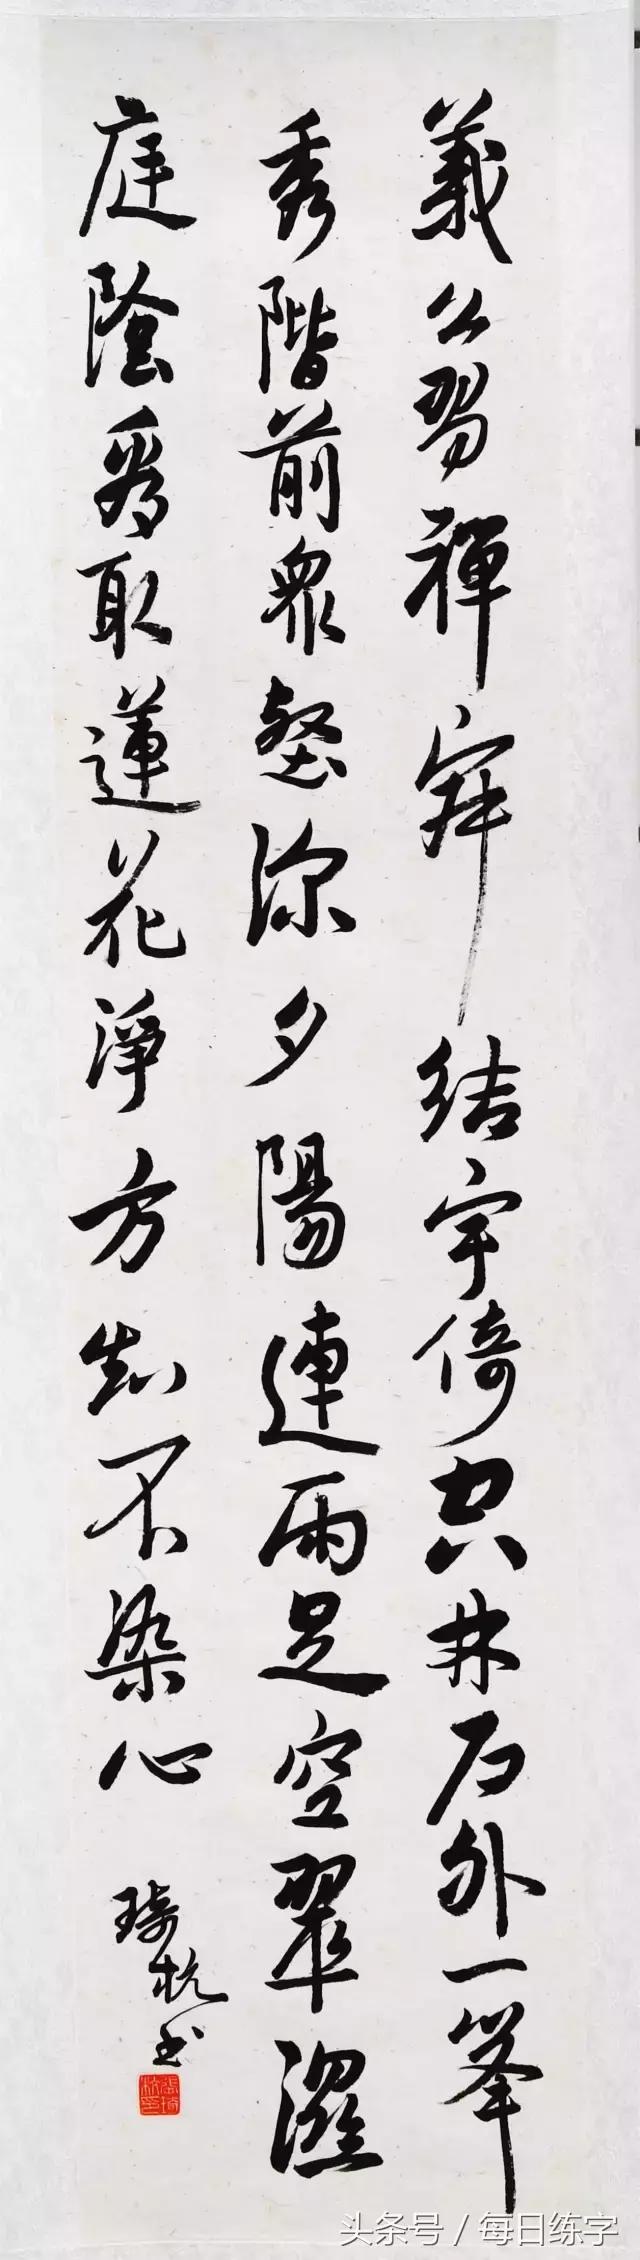 義公習禪寂結宇倚空林户外一峯
秀階前衆壑深夕陽連雨足空翠濕
庭陰看取蓮花淨方知不染心
琦杭书
头条号 / 每日练字